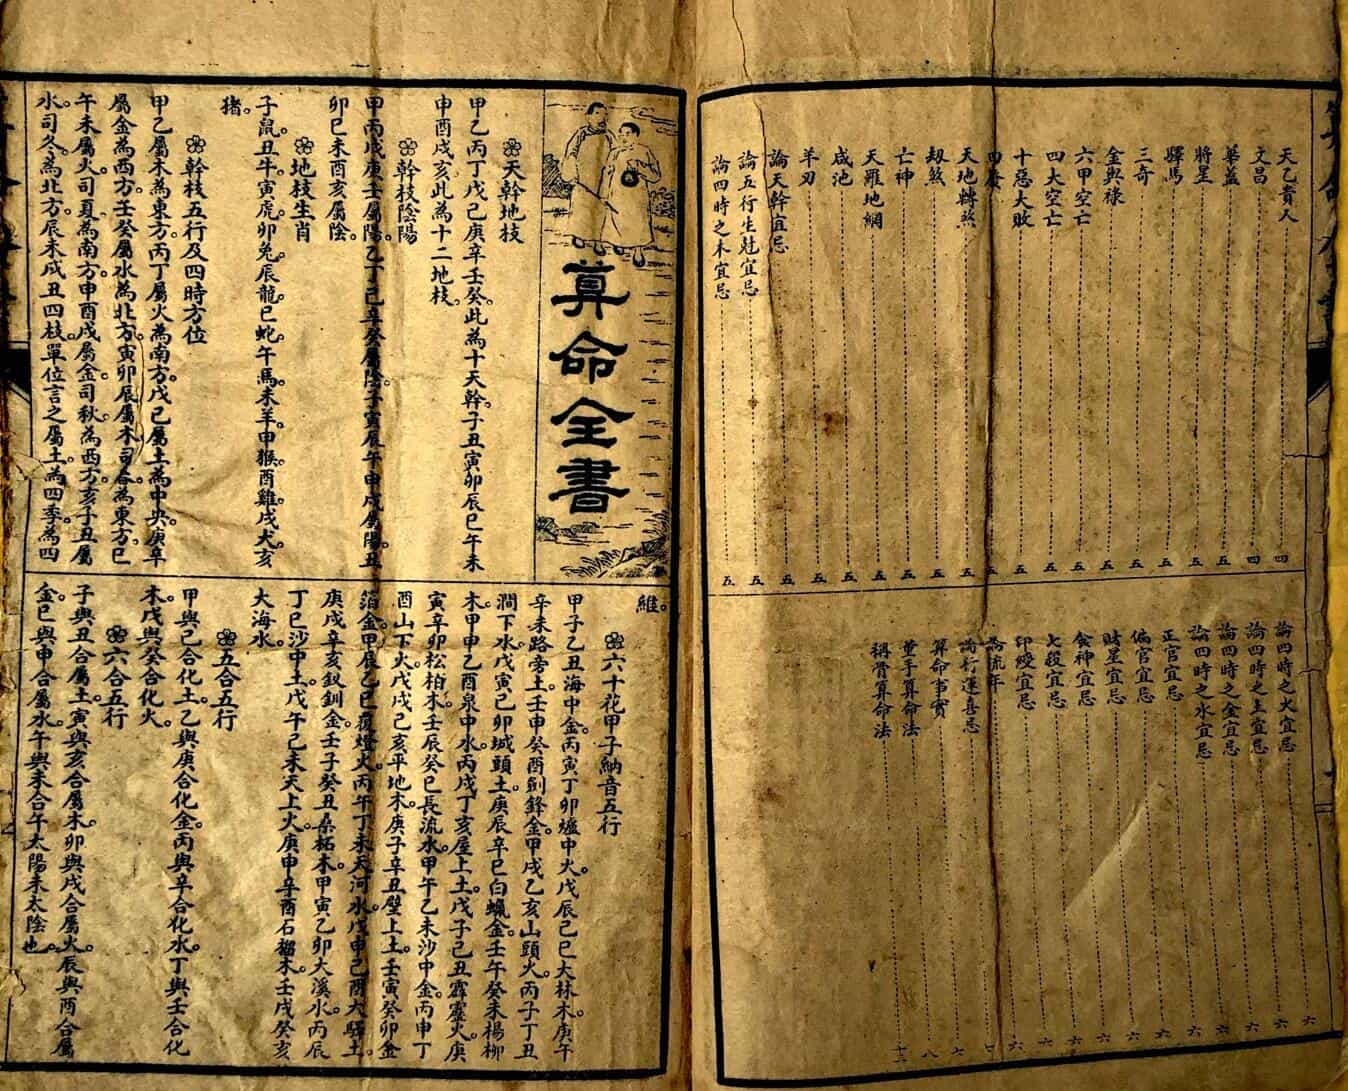 天乙貴人 四
文昌 四
華蓋 五
將星 五
驛馬 五
三奇 五
金與祿 五
六甲空亡 五
四大空亡 五
十惡大敗 五
四廢 五
天地轉煞 五
劫煞 五
亡神 五
天羅地網 五
咸池 五
羊刃 五
論天幹宜忌 五
論五行生尅宜忌 五
論四時之木宜忌 五
論四時之火宜忌 六
論四時之土宜忌 六
論四時之金宜忌 六
論四時之水宜忌 六
正官宜忌 六
偏官宜忌 六
財星宜忌 六
食神宜忌 六
七殺宜忌 六
印綬宜忌 六
論流年
論行運喜忌
算命事實 七
童手算命法 八
稱骨算命法
算命全書
天幹地枝
甲乙丙丁戊己庚辛壬癸。此為十天幹。子丑寅卯辰巳午未
申酉戌亥此為十二地枝。
幹枝陰陽
甲丙戊庚壬屬陽。乙丁己辛癸屬陰。子寅辰午申戌屬陽。丑
卯巳未酉亥屬陰。
地枝生肖
子鼠。丑牛。寅虎。卯兔。辰龍。巳蛇。午馬。未羊。申猴。酉雞。戌犬。亥
猪。
幹枝五行及四時方位
甲乙屬木為東方。丙丁屬火為南方。戊己屬土為中央。庚辛
屬金為西方。壬癸屬水為北方。寅卯辰屬木。司春為東方。巳
午未屬火。司夏為南方。申酉戌屬金。司秋為西方。亥子丑屬
水。司冬為北方。辰未戌丑四枝單位言之屬土。為四季。為四
維。
六十花甲子納音五行
甲子乙丑海中金。丙寅丁卯爐中火。戊辰己巳大林木。庚午
辛未路旁土。壬申癸酉劍鋒金。甲戌乙亥山頭火。丙子丁丑
澗下水。戊寅己卯城頭土。庚辰辛巳白蠟金。壬午癸未楊柳
木。甲申乙酉泉中水。丙戌丁亥屋上土。戊子己丑霹靂火。庚
寅辛卯松柏木。壬辰癸巳長流水。甲午乙未沙中金。丙申丁
酉山下火。戊戌己亥平地木。庚子辛丑壁上土。壬寅癸卯金
箔金。甲辰乙巳覆燈火。丙午丁未天河水。戊申己酉大驛土。
庚戌辛亥釵釧金。壬子癸丑桑柘木。甲寅乙卯大溪水。丙辰
丁巳沙中土。戊午己未天上火。庚申辛酉石榴木。壬戌癸亥
大海水。
五合五行
甲與己合化土。乙與庚合化金。丙與辛合化水。丁與壬合化
木。戊與癸合化火。
六合五行
子與丑合屬土。寅與亥合屬木。卯與戌合屬火。辰與酉合屬
金。巳與申合屬水。午與未合午太陽未太陰也。